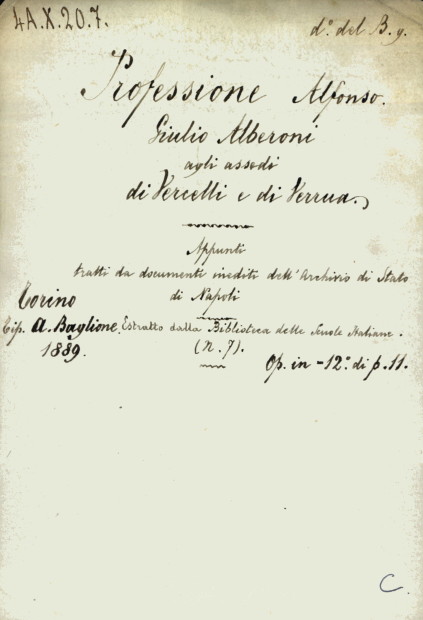 4A.X.20.7.
d.º del B. g.
Professione Alfonso.
Giulio Alberoni
agli assedi
di Vercelli e di Verrua.
Appunti
tratti da documenti inediti dell'Archivio di Stato
di Napoli
Torino
Tip. A. Baglione. Estratto dalla Biblioteca delle Scuole Italiane.
1889.
(n. 7).
Op. in -12.º di p. 11.
C.